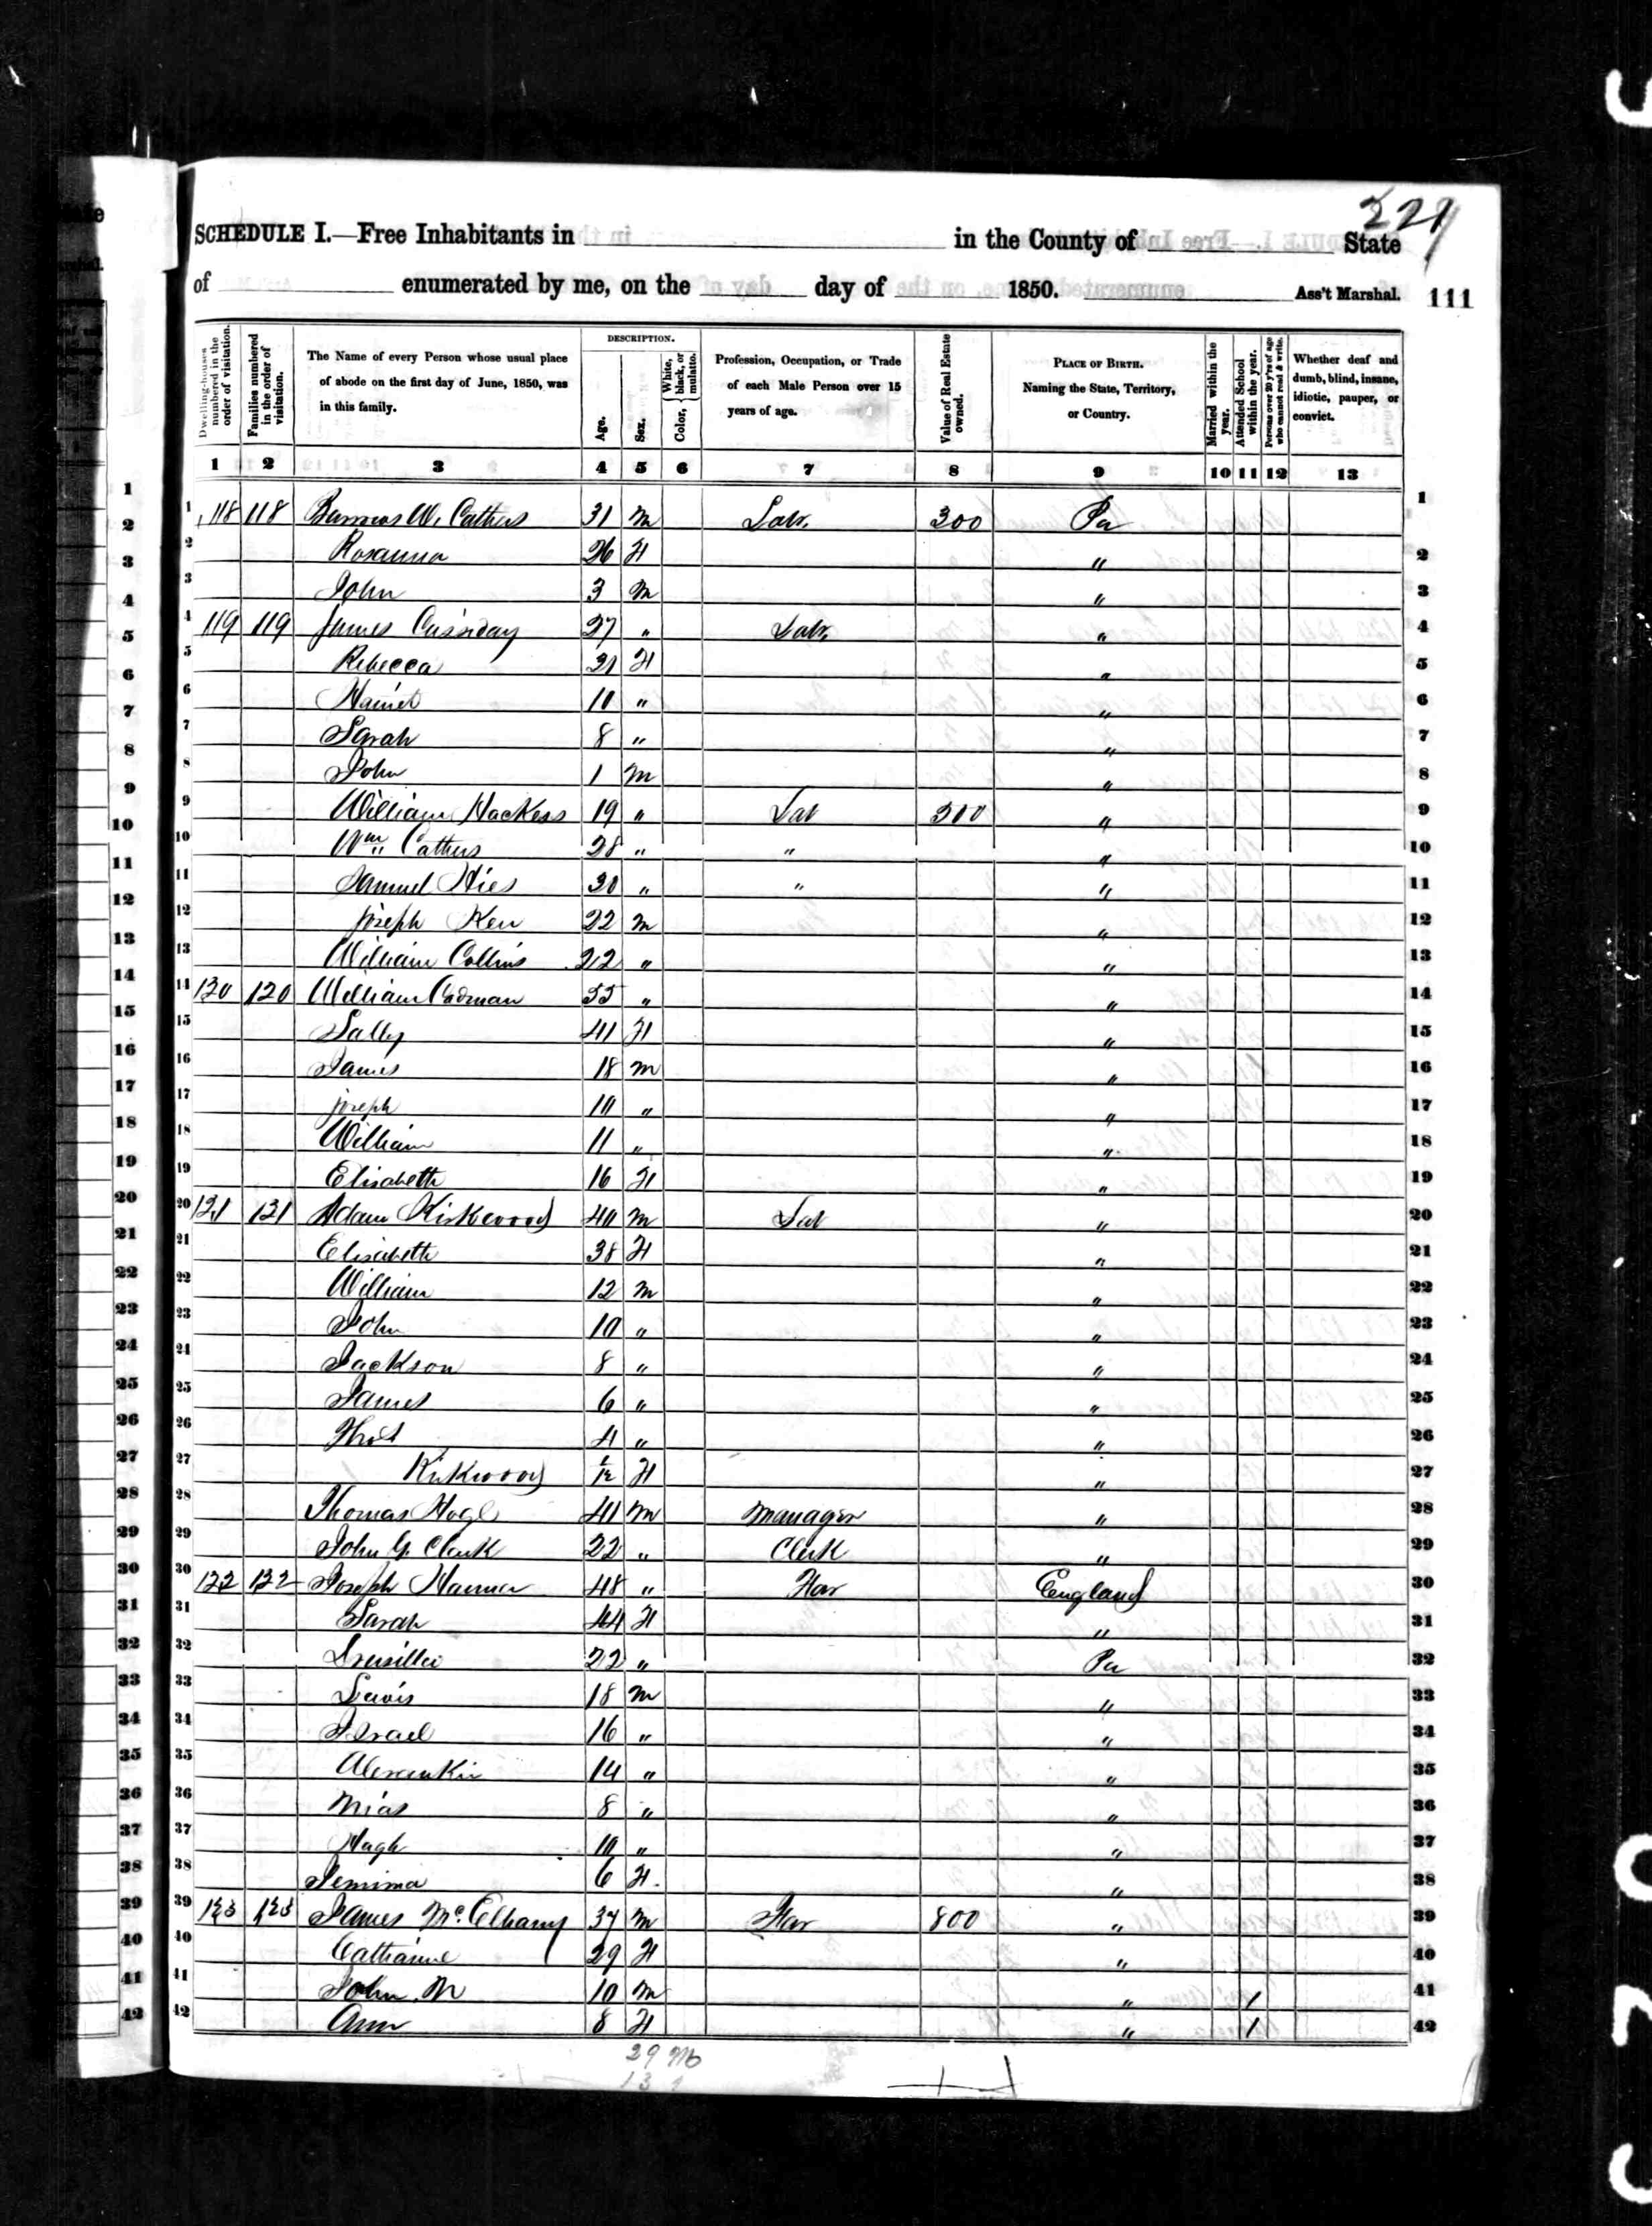 221
SCHEDULE I.—Free Inhabitants in in the County of State
of enumerated by me, on the day of 1850. Ass't Marshal. 111
Dwelling-houses numbered in the order of visitation.
Families numbered in the order of visitation.
The Name of every Person whose usual place of abode on the first day of June, 1850, was in this family.
DESCRIPTION.
Age.
Sex.
Color, White, black, or mulatto.
Profession, Occupation, or Trade of each Male Person over 15 years of age.
Value of Real Estate owned.
PLACE OF BIRTH. Naming the State, Territory, or Country.
Married within the year.
Attended School within the year.
Persons over 20 y'rs of age who cannot read & write.
Whether deaf and dumb, blind, insane, idiotic, pauper, or convict.
1 2 3 4 5 6 7 8 9 10 11 12 13
1 118 118 W. Cathers 31 M Lab. 300 Pa 1
2 Rosanna 26 F " 2
3 John 3 M " 3
4 119 119 James Cassiday 27 " Lab. " 4
5 Rebecca 31 F " 5
6 Harriet 10 " " 6
7 Sarah 8 " " 7
8 John 1 M " 8
9 William 19 " Lab " 9
10 Wm Cathers 28 " " " 10
11 Samuel 30 " " " 11
12 Joseph Kerr 22 M " 12
13 William Collins 22 " " 13
14 120 120 William 55 " " 14
15 Sally 41 F " 15
16 James 18 M " 16
17 Joseph 10 " " 17
18 William 11 " " 18
19 Elisabeth 16 F " 19
20 121 121 Adam Kirkwood 40 M Lab " 20
21 Elisabeth 38 F " 21
22 William 12 M " 22
23 John 10 " " 23
24 Jackson 8 " " 24
25 James 6 " " 25
26 Thos 4 " " 26
27 Kirkwood 1/12 F " 27
28 Thomas 41 M Manager " 28
29 John G. Clark 22 " Clerk " 29
30 122 122 Joseph 48 " Far England 30
31 Sarah 44 F " 31
32 Drusilla 22 " Pa 32
33 18 M " 33
34 Israel 16 " " 34
35 14 " " 35
36 8 " " 36
37 Hugh 10 " " 37
38 Jemima 6 F. " 38
39 123 123 James McElhany 37 M Far 800 " 39
40 Catharine 29 F " 40
41 John M 10 M " 1 41
42 Ann 8 F " 1 42
29 M
13